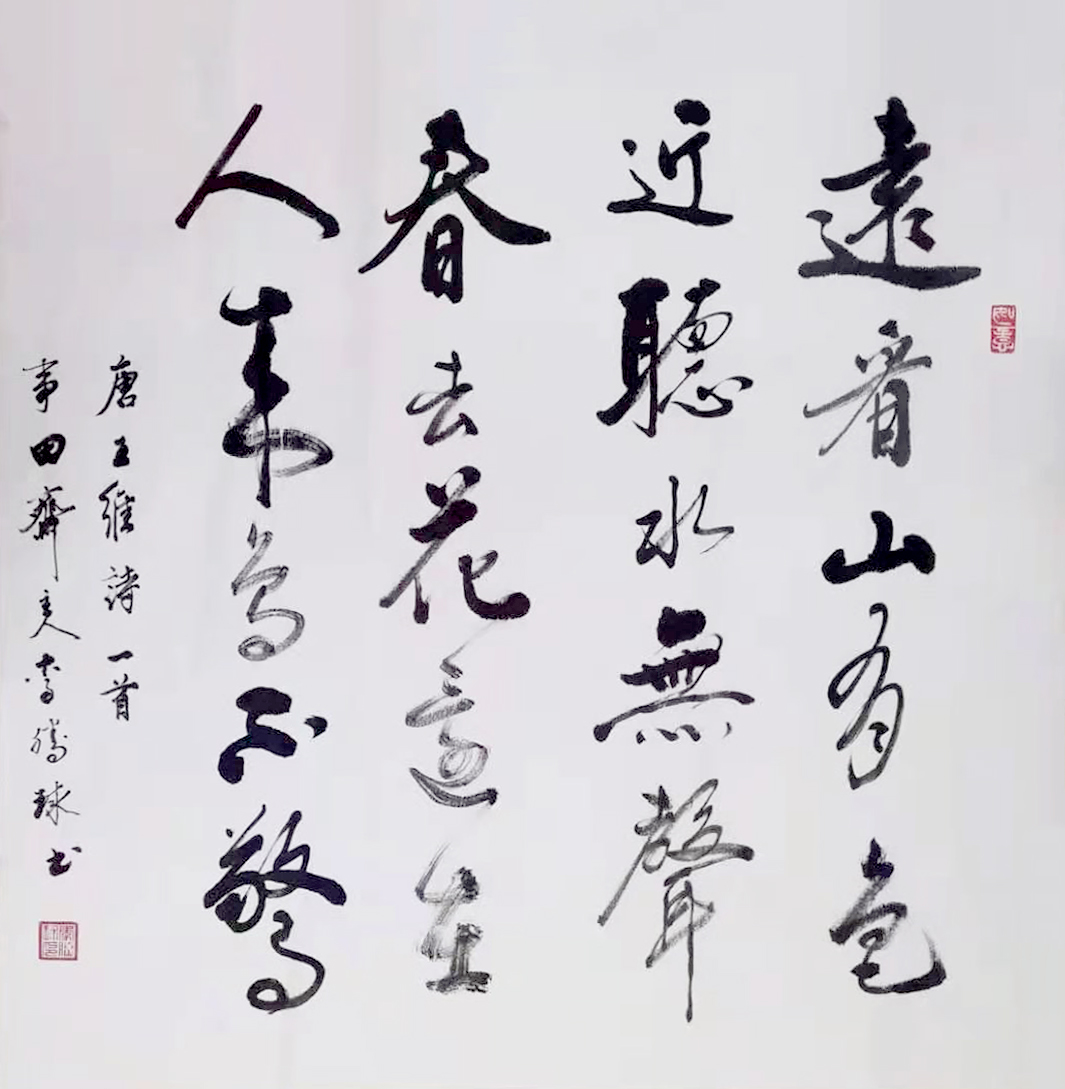 遠看山有色
近聽水無聲
春去花還在
人来鳥不驚
唐王維詩一首
事田齋主人李騰球书
如意